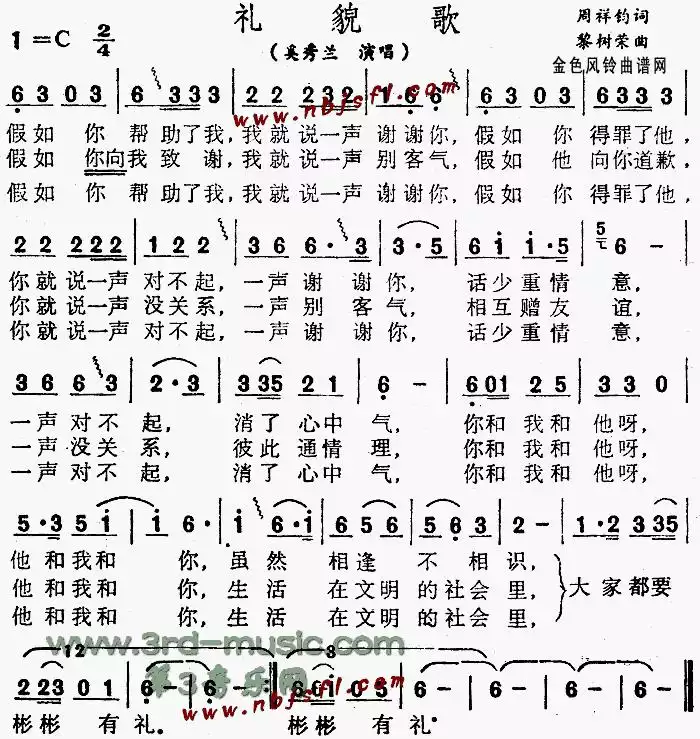 礼貌歌
周祥钧词
1=C 2/4
(奚秀兰 演唱)
黎树荣曲
金色风铃曲谱网
www.nbjsfl.com
6 3 0 3 | 6 3 3 3 | 2 2 2 3 2 | 1 6 6 | 6 3 0 3 | 6 3 3 3 |
假如 你 帮助了我,我就说一声 谢谢你,假如 你 得罪了他,
假如 你向我致 谢,我就说一声 别客气,假如 他 向你道歉,
假如 你 帮助了我,我就说一声 谢谢你,假如 你 得罪了他,
2 2 2 2 2 | 1 2 2 | 3 6 6· 3 | 3·5 | 6 i i·5 | 6 - |
你就说一声 对不起,一声 谢 谢 你, 话少重情 意,
你就说一声 没关系,一声 别 客 气, 相互赠友 谊,
你就说一声 对不起,一声 谢 谢 你, 话少重情 意,
3 6 6 3 | 2·3 | 3 3 5 2 1 | 6 - | 6 0 1 2 5 | 3 3 0 |
一声 对不 起, 消了 心中 气, 你和 我和 他呀,
一声 没关 系, 彼此 通情 理, 你和 我和 他呀,
一声 对不 起, 消了 心中 气, 你和 我和 他呀,
5·3 5 i | i 6· | i 6·i | 6 5 6 | 5 6 3 | 2 - | 1·2 3 3 5 |
他 和我和 你,虽 然 相逢 不 相 识,
他 和我和 你,生 活 在文明 的社会 里, 大 家 都要
他 和我和 你,生 活 在文明 的社会 里,
www.3rd-music.com
12 3
第3音乐网
2 2 3 0 1 | 6 - | 6 - :| 6 0 1 0 5 | 6 - | 6 - | 6 - | 6 - ||
www.nbjsfl.com
彬彬 有 礼。 彬彬 有 礼。